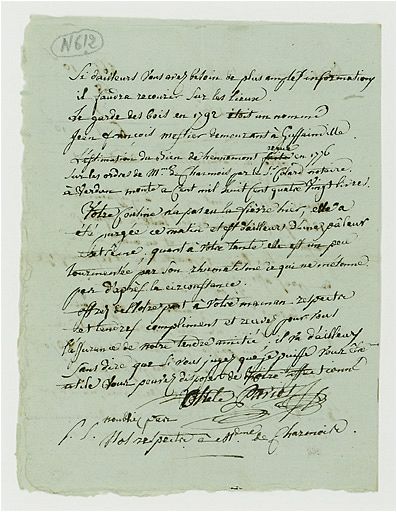 N612
Si d'ailleurs vous avez besoin de plus amples informations
il faudra recourir sur les lieux.
Le garde des bois en 1792 était un nommé
Jean françois mestier demeurant à Gussainville.
L'estimation du bien de hennemont faite en 1776
Sur les ordres de Mde De Charmois par le Sr Colard notaire
à Verdun monte a Cent mil huit cent quatre vingt livres.
Votre Cousine n'a pas eu la fievre hier, elle a
été purgée ce matin et est d'ailleurs d'une pâleur
quant à votre tante elle est un peu
tourmentée par son rhumatisme ce qui ne m'étonne
pas d'après la circonstance.
offrez de Notre part à Votre maman respects
et tendres compliments et recevez pour vous
l'assurance de notre tendre amitié, il va d'ailleurs
sans dire que si vous jugez que je puisse vous être
utile vous pouvez disposer de Notre
P.S. n'oubliez pas
Nos respects a de Charmois.